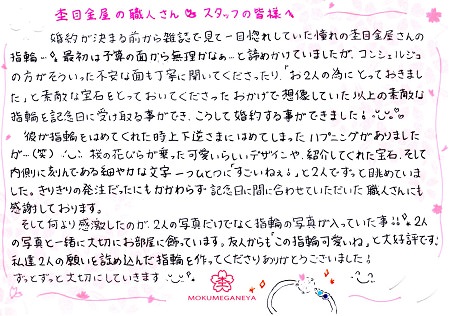 杢目金屋の職人さん スタッフの皆様へ
婚約が決まる前から雑誌で見て一目惚れしていた憧れの杢目金屋さんの
指輪…。最初は予算の面から無理かなぁ…と諦めかけていましたが、コンシェルジュ
の方がそういった不安な面も丁寧に聞いてくださったり、「お2人の為にとっておきまし
た」と素敵な宝石をとっておいてくださったおかげで想像していた以上の素敵な
指輪を記念日に受け取る事ができ、こうして婚約する事ができました!
彼が指輪をはめてくれた時上下逆さまにはめてしまったハプニングがありました
が…(笑) 桜の花びらが舞った可愛いらしいデザインや、紹介してくれた宝石、そして
内側に刻んである細やかな文字 一つひとつに「すごいねぇ」と2人でずっと眺めていま
した。ぎりぎりの発注だったにもかかわらず 記念日に間に合わせていただいた職人さんにも
感謝しております。
そして何より感激したのが、2人の写真だけでなく指輪の写真が入っていた事!! 2人
の写真と一緒に大切にお部屋に飾っています。友人からも「この指輪可愛いね」と大好評です。
私達2人の願いを詰め込んだ指輪を作ってくださりありがとうございました!
ずっとずっと大切にしていきます
MOKUMEGANEYA